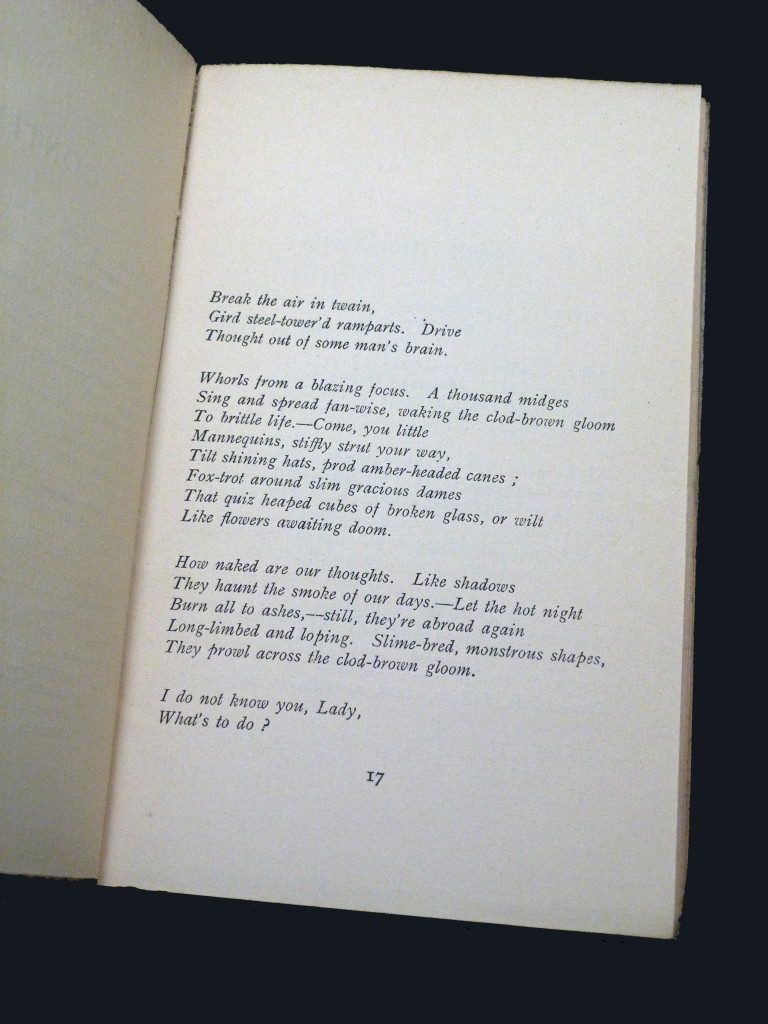 Break the air in twain,
Gird steel-tower'd ramparts. Drive
Thought out of some man's brain.
Whorls from a blazing focus. A thousand midges
Sing and spread fan-wise, waking the clod-brown gloom
To brittle life.—Come, you little
Mannequins, stiffly strut your way,
Tilt shining hats, prod amber-headed canes ;
Fox-trot around slim gracious dames
That quiz heaped cubes of broken glass, or wilt
Like flowers awaiting doom.
How naked are our thoughts. Like shadows
They haunt the smoke of our days.—Let the hot night
Burn all to ashes,—still, they're abroad again
Long-limbed and loping. Slime-bred, monstrous shapes,
They prowl across the clod-brown gloom.
I do not know you, Lady,
What's to do ?
17